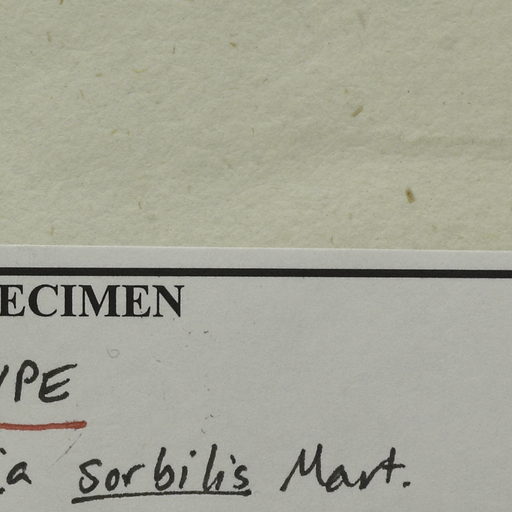 ECIMEN
YPE
ia sorbilis Mart.